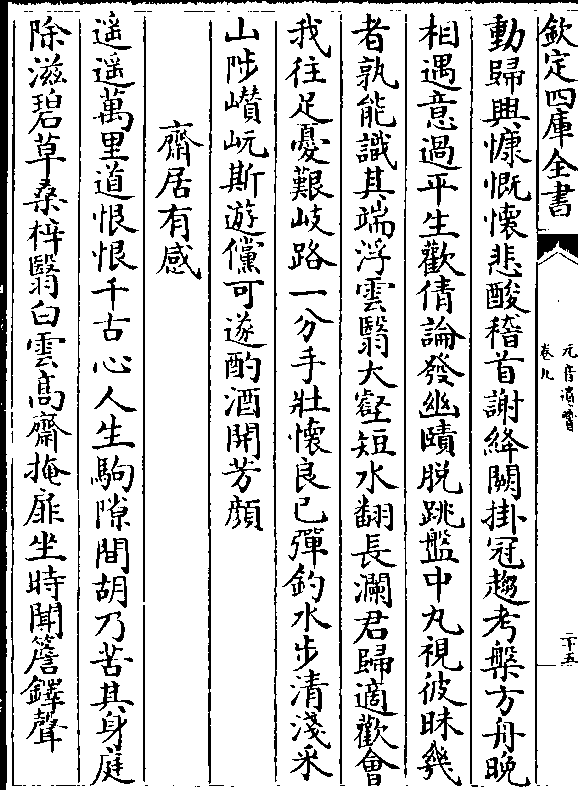 欽定四庫全書
元音遺響
卷九
二十五
動歸興慷慨懷悲酸稽首謝絳闕掛冠趨考槃方舟晚
相遇意過平生歡倩論發幽賾脱跳盤中丸視彼昧幾
者孰能識其端浮雲翳大壑短水翻長瀾君歸適歡會
我往足憂艱岐路一分手壯懷良已彈釣水步清淺采
山陟巑岏斯遊儻可遂酌酒開芳顔
齋居有感
遥遥萬里道恨恨千古心人生駒隙間胡乃苦其身庭
除滋碧草桑梓翳白雲高齋掩扉坐時聞簷鐸聲